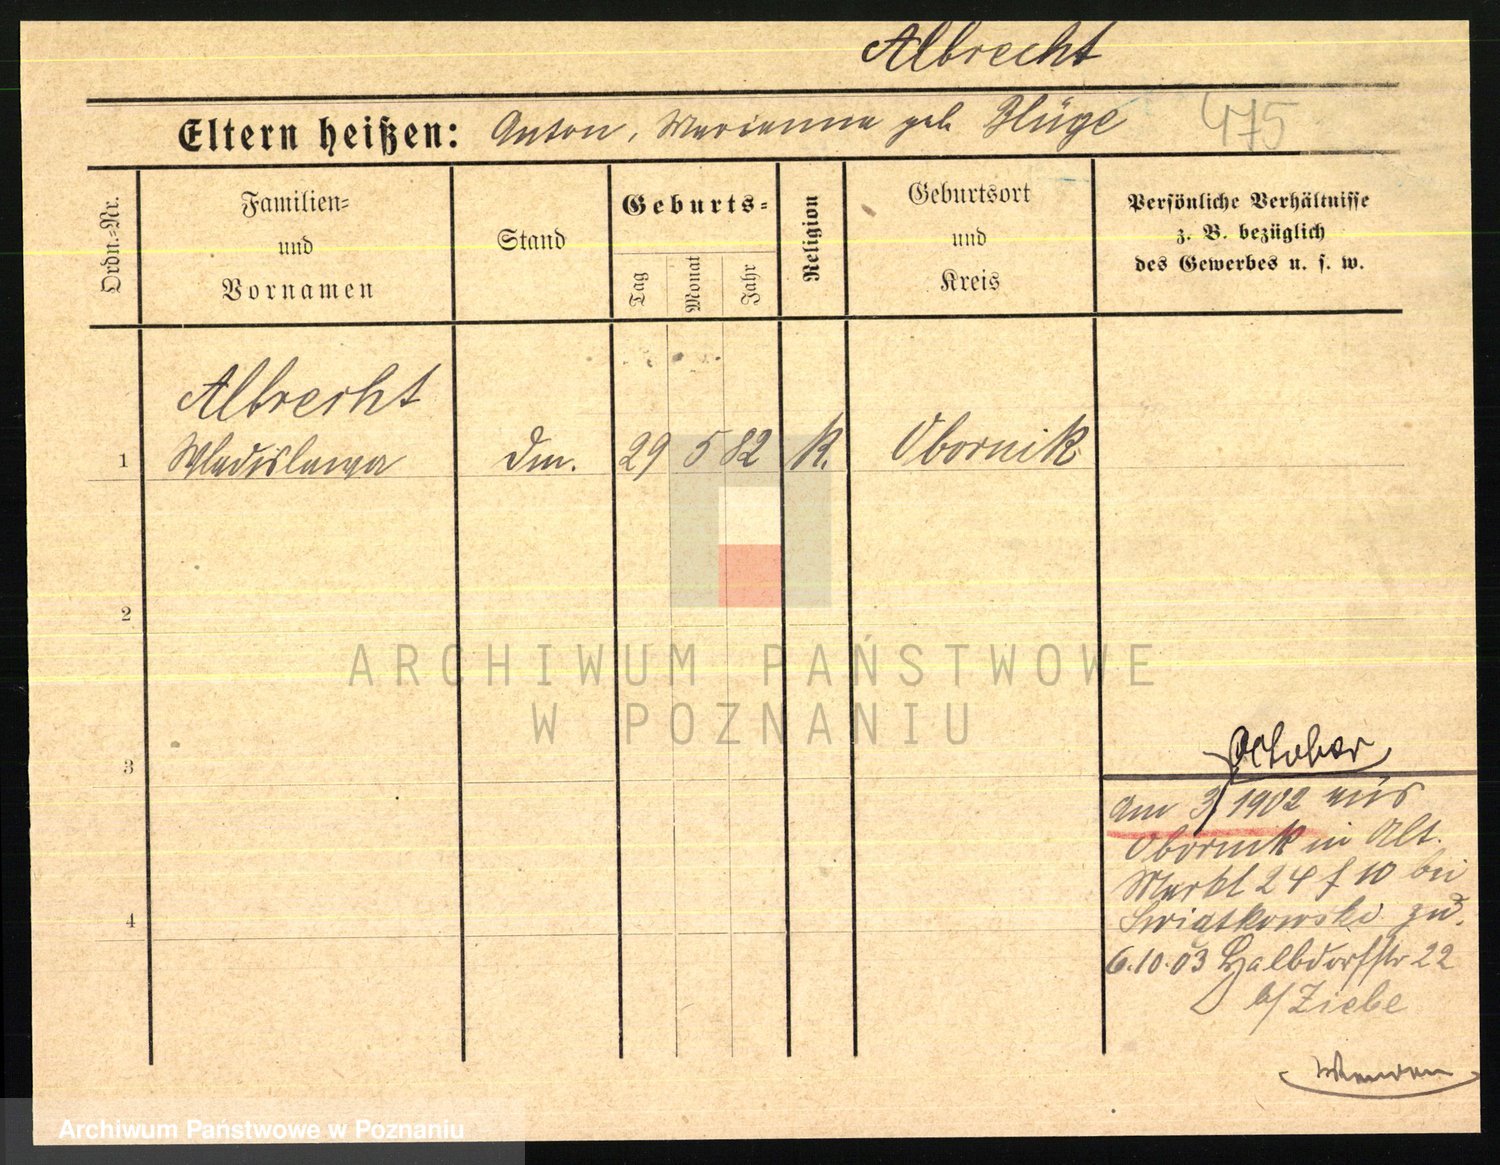 Albrecht
Eltern heißen: Anton, Marianna geb. Flüge
475
Ordn.-Nr.
Familien-
und
Vornamen
Stand
Geburts-
Tag
Monat
Jahr
Religion
Geburtsort
und
Kreis
Persönliche Verhältnisse
z. B. bezüglich
des Gewerbes u. s. w.
Albrecht
1 Wladislawa 29 5 82 K. Obornik
2
3
4
October
am 3/1902 aus
Obornik in Alt.
Markt 24 f 10 bei
Swiatkowski zu.
6.10.03 Halbdorfstr 22
b/ Ziebe
ARCHIWUM PAŃSTWOWE
W POZNANIU
Archiwum Państwowe w Poznaniu